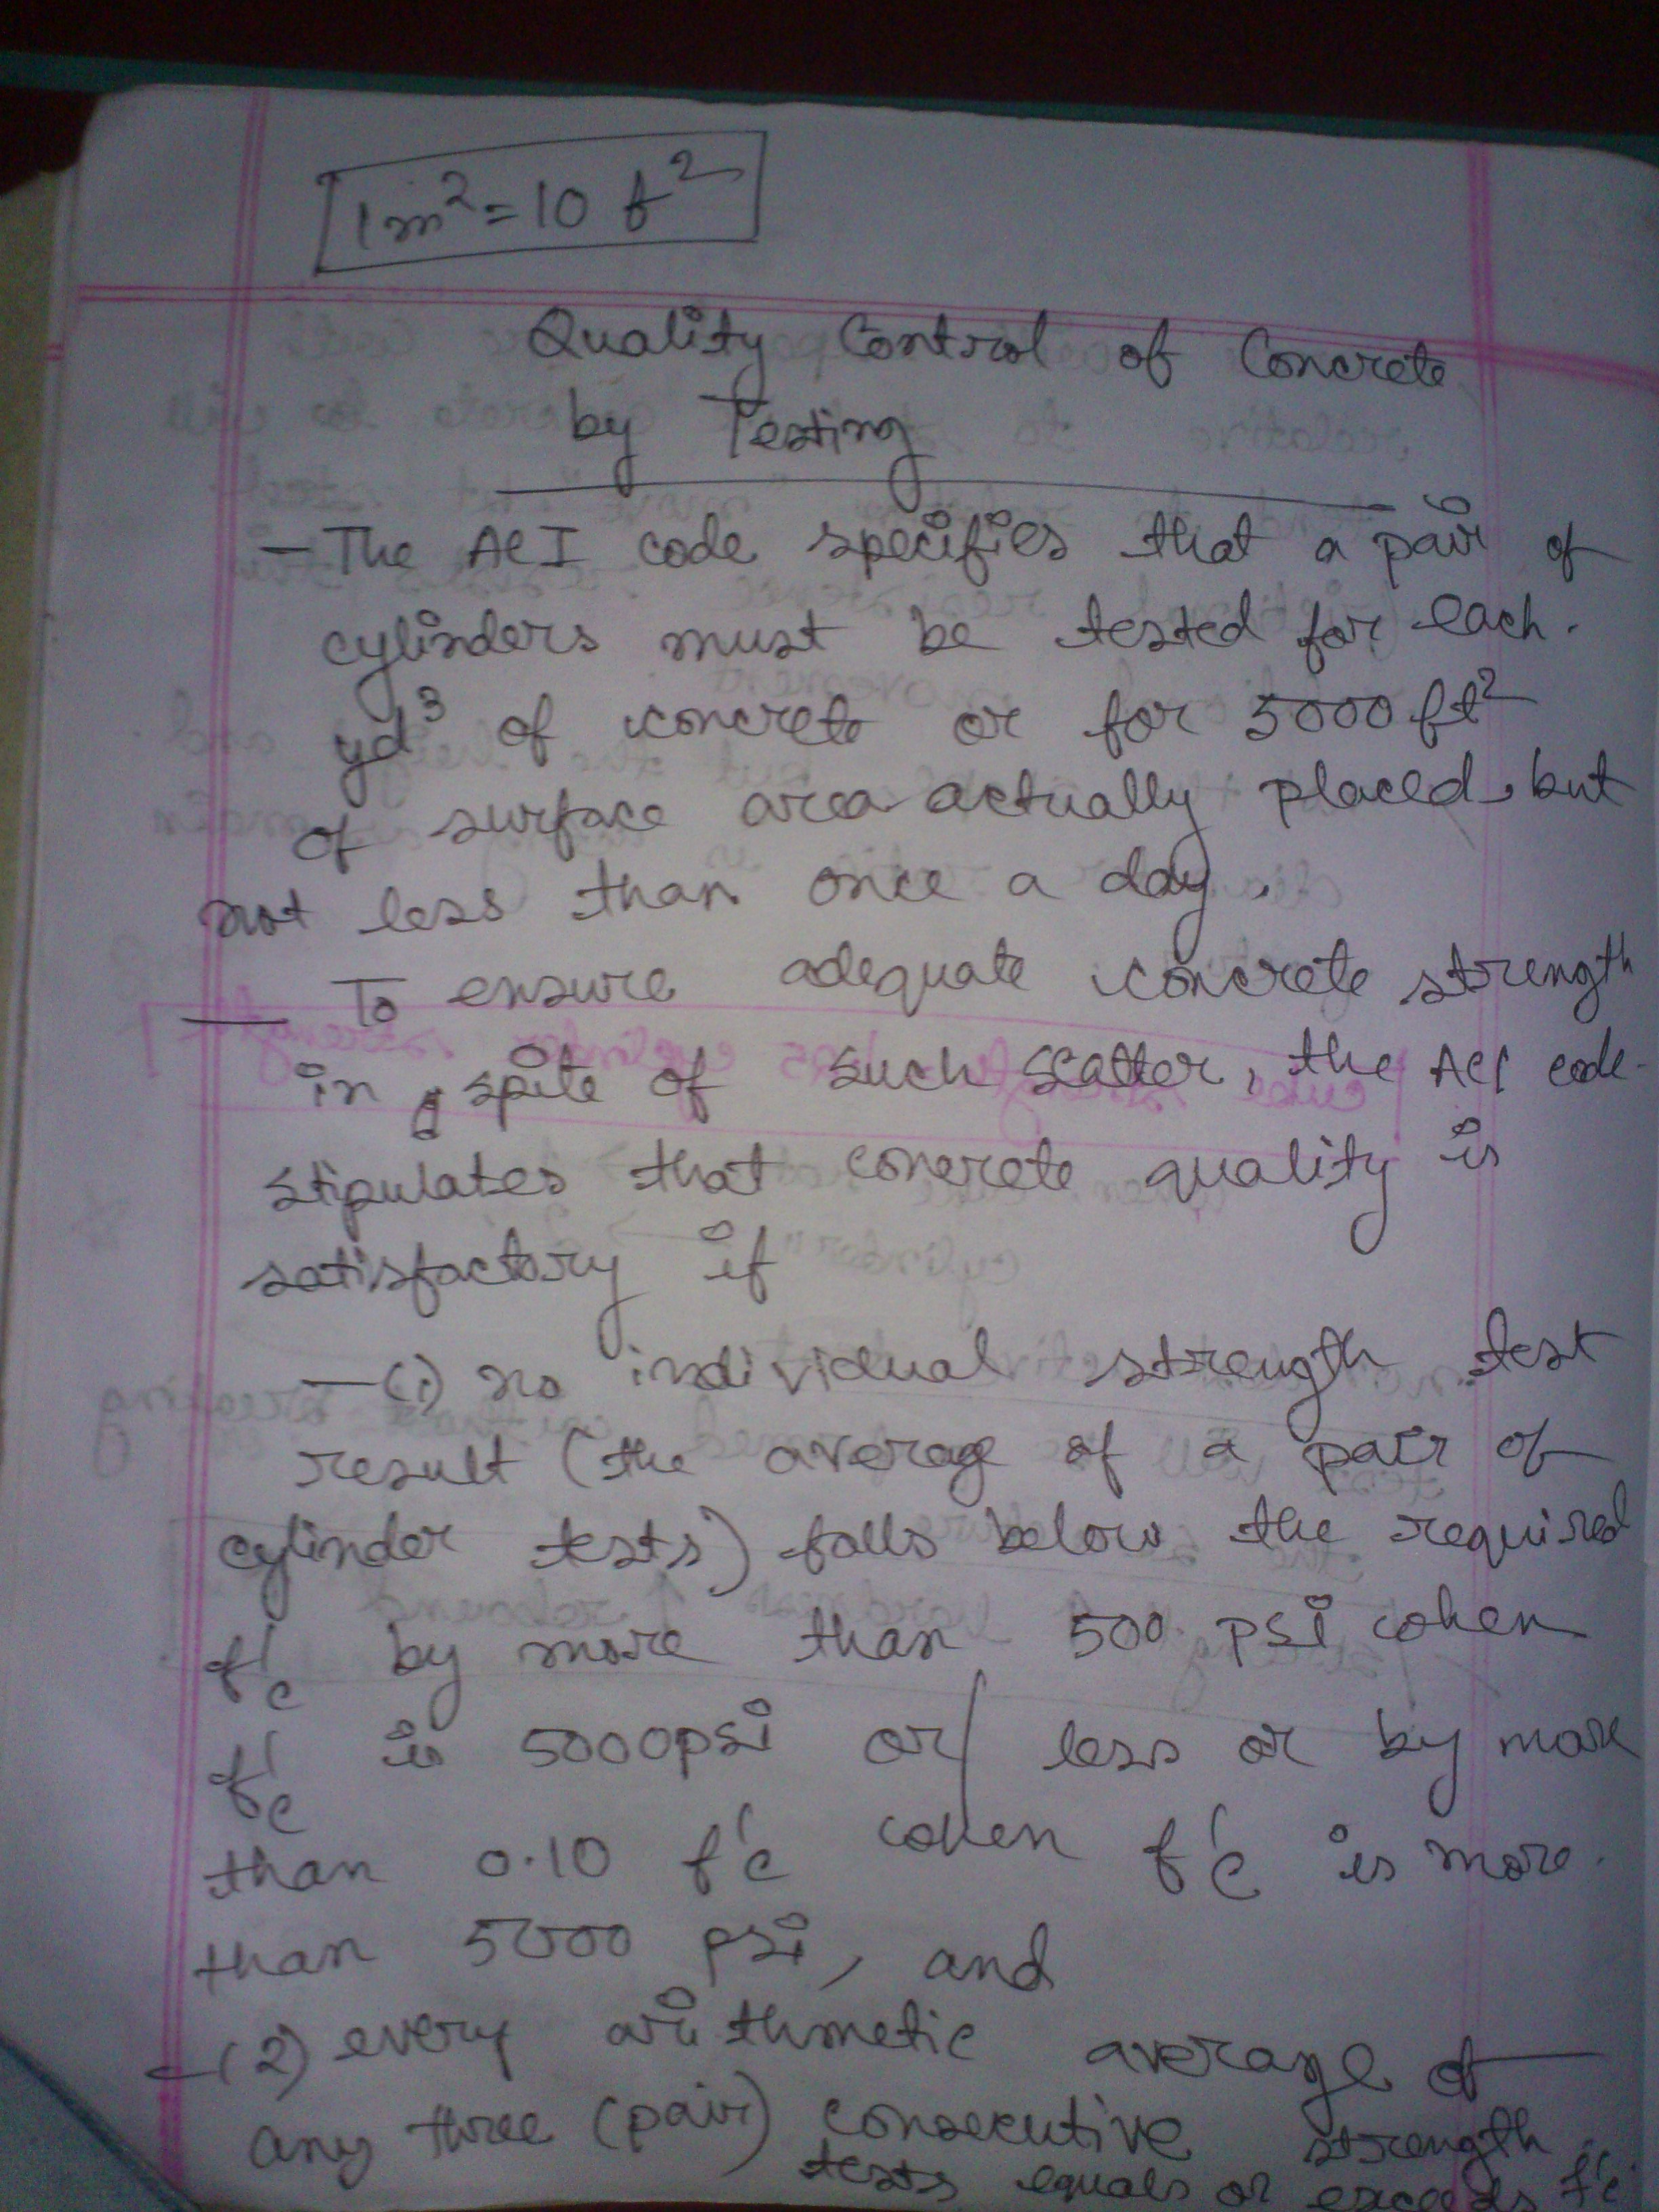 1m²=10 ft²
Quality Control of Concrete
by Testing
— The ACI code specifies that a pair of
cylinders must be tested for each
yd³ of concrete or for 5000 ft²
of surface area actually placed, but
not less than once a day.
— To ensure adequate concrete strength
in spite of such scatter, the ACI code
stipulates that concrete quality is
satisfactory if
— (i) no individual strength test
result (the average of a pair of
cylinder tests) falls below the required
f'c by more than 500 psi when
f'c is 5000psi or/ less or by more
than 0.10 f'c when f'c is more
than 5000 psi, and
— (2) every arithmetic average of
any three (pair) consecutive strength
tests equals or exceeds f'c